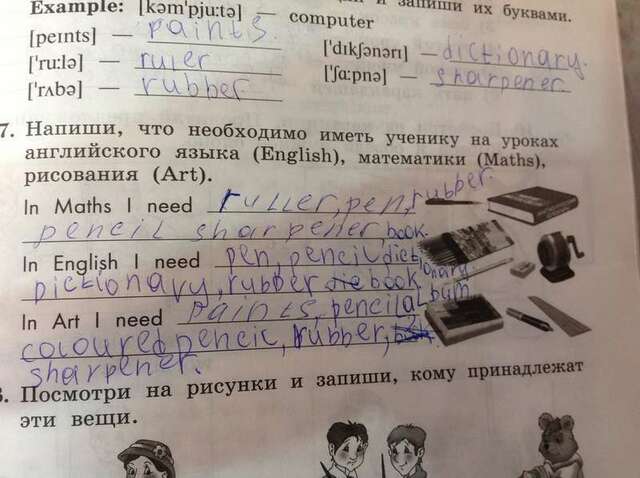 и запиши их буквами.
Example: [kəm'pju:tə] — computer
[peɪnts] — paints.
['dɪkʃənərɪ] — dictionary.
['ru:lə] — ruler
['ʃɑ:pnə] — sharpener
['rʌbə] — rubber.
7. Напиши, что необходимо иметь ученику на уроках
английского языка (English), математики (Maths),
рисования (Art).
In Maths I need ruller, pen, rubber.
pencil sharpener, book.
In English I need pen, pencil, dictionary
dictionary, rubber book
In Art I need Paints, pencil album
coloured pencil, rubber,
sharpener.
8. Посмотри на рисунки и запиши, кому принадлежат
эти вещи.